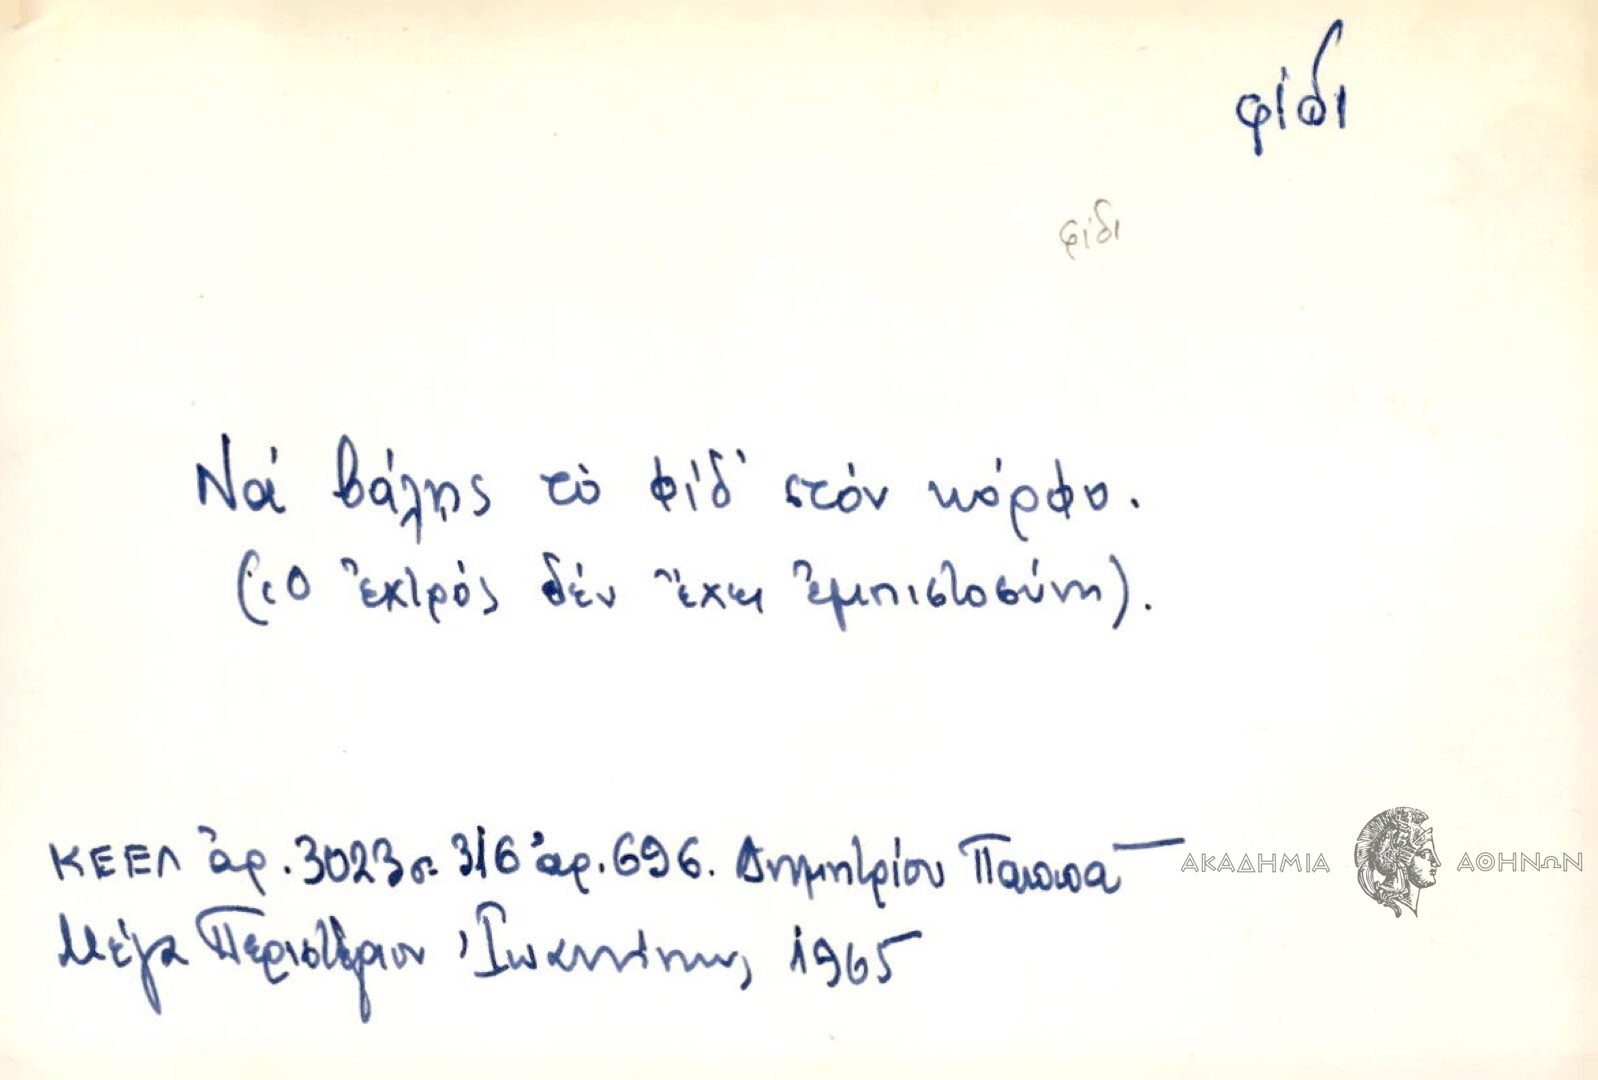 φίδι
φίδι
Νά βάλῃς τὸ φίδ' στόν κόρφο.
(Ὁ ἐχτρός δέν ἔχει ἐμπιστοσύνη).
ΚΕΕΛ ἀρ. 3023 σ. 316 ἀρ. 696. Δημητρίου Παππᾶ
Μέγα Περιστέριον Ἰωαννίνων, 1965
ΑΚΑΔΗΜΙΑ ΑΘΗΝΩΝ